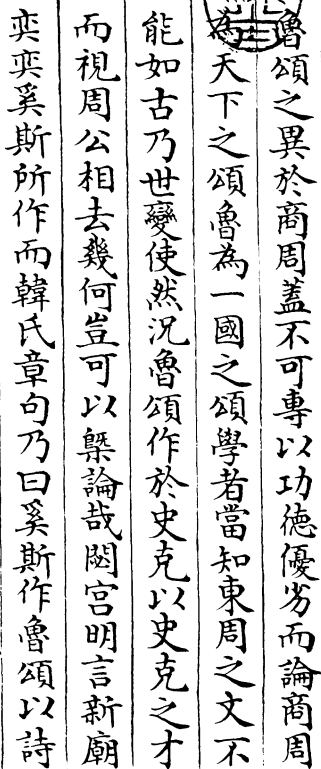 魯頌之異於商周蓋不可專以功徳優劣而論商周
為天下之頌魯為一國之頌學者當知東周之文不
能如古乃世變使然況魯頌作於史克以史克之才
而視周公相去幾何豈可以槩論哉閟宮明言新廟
奕奕奚斯所作而韓氏章句乃曰奚斯作魯頌以詩